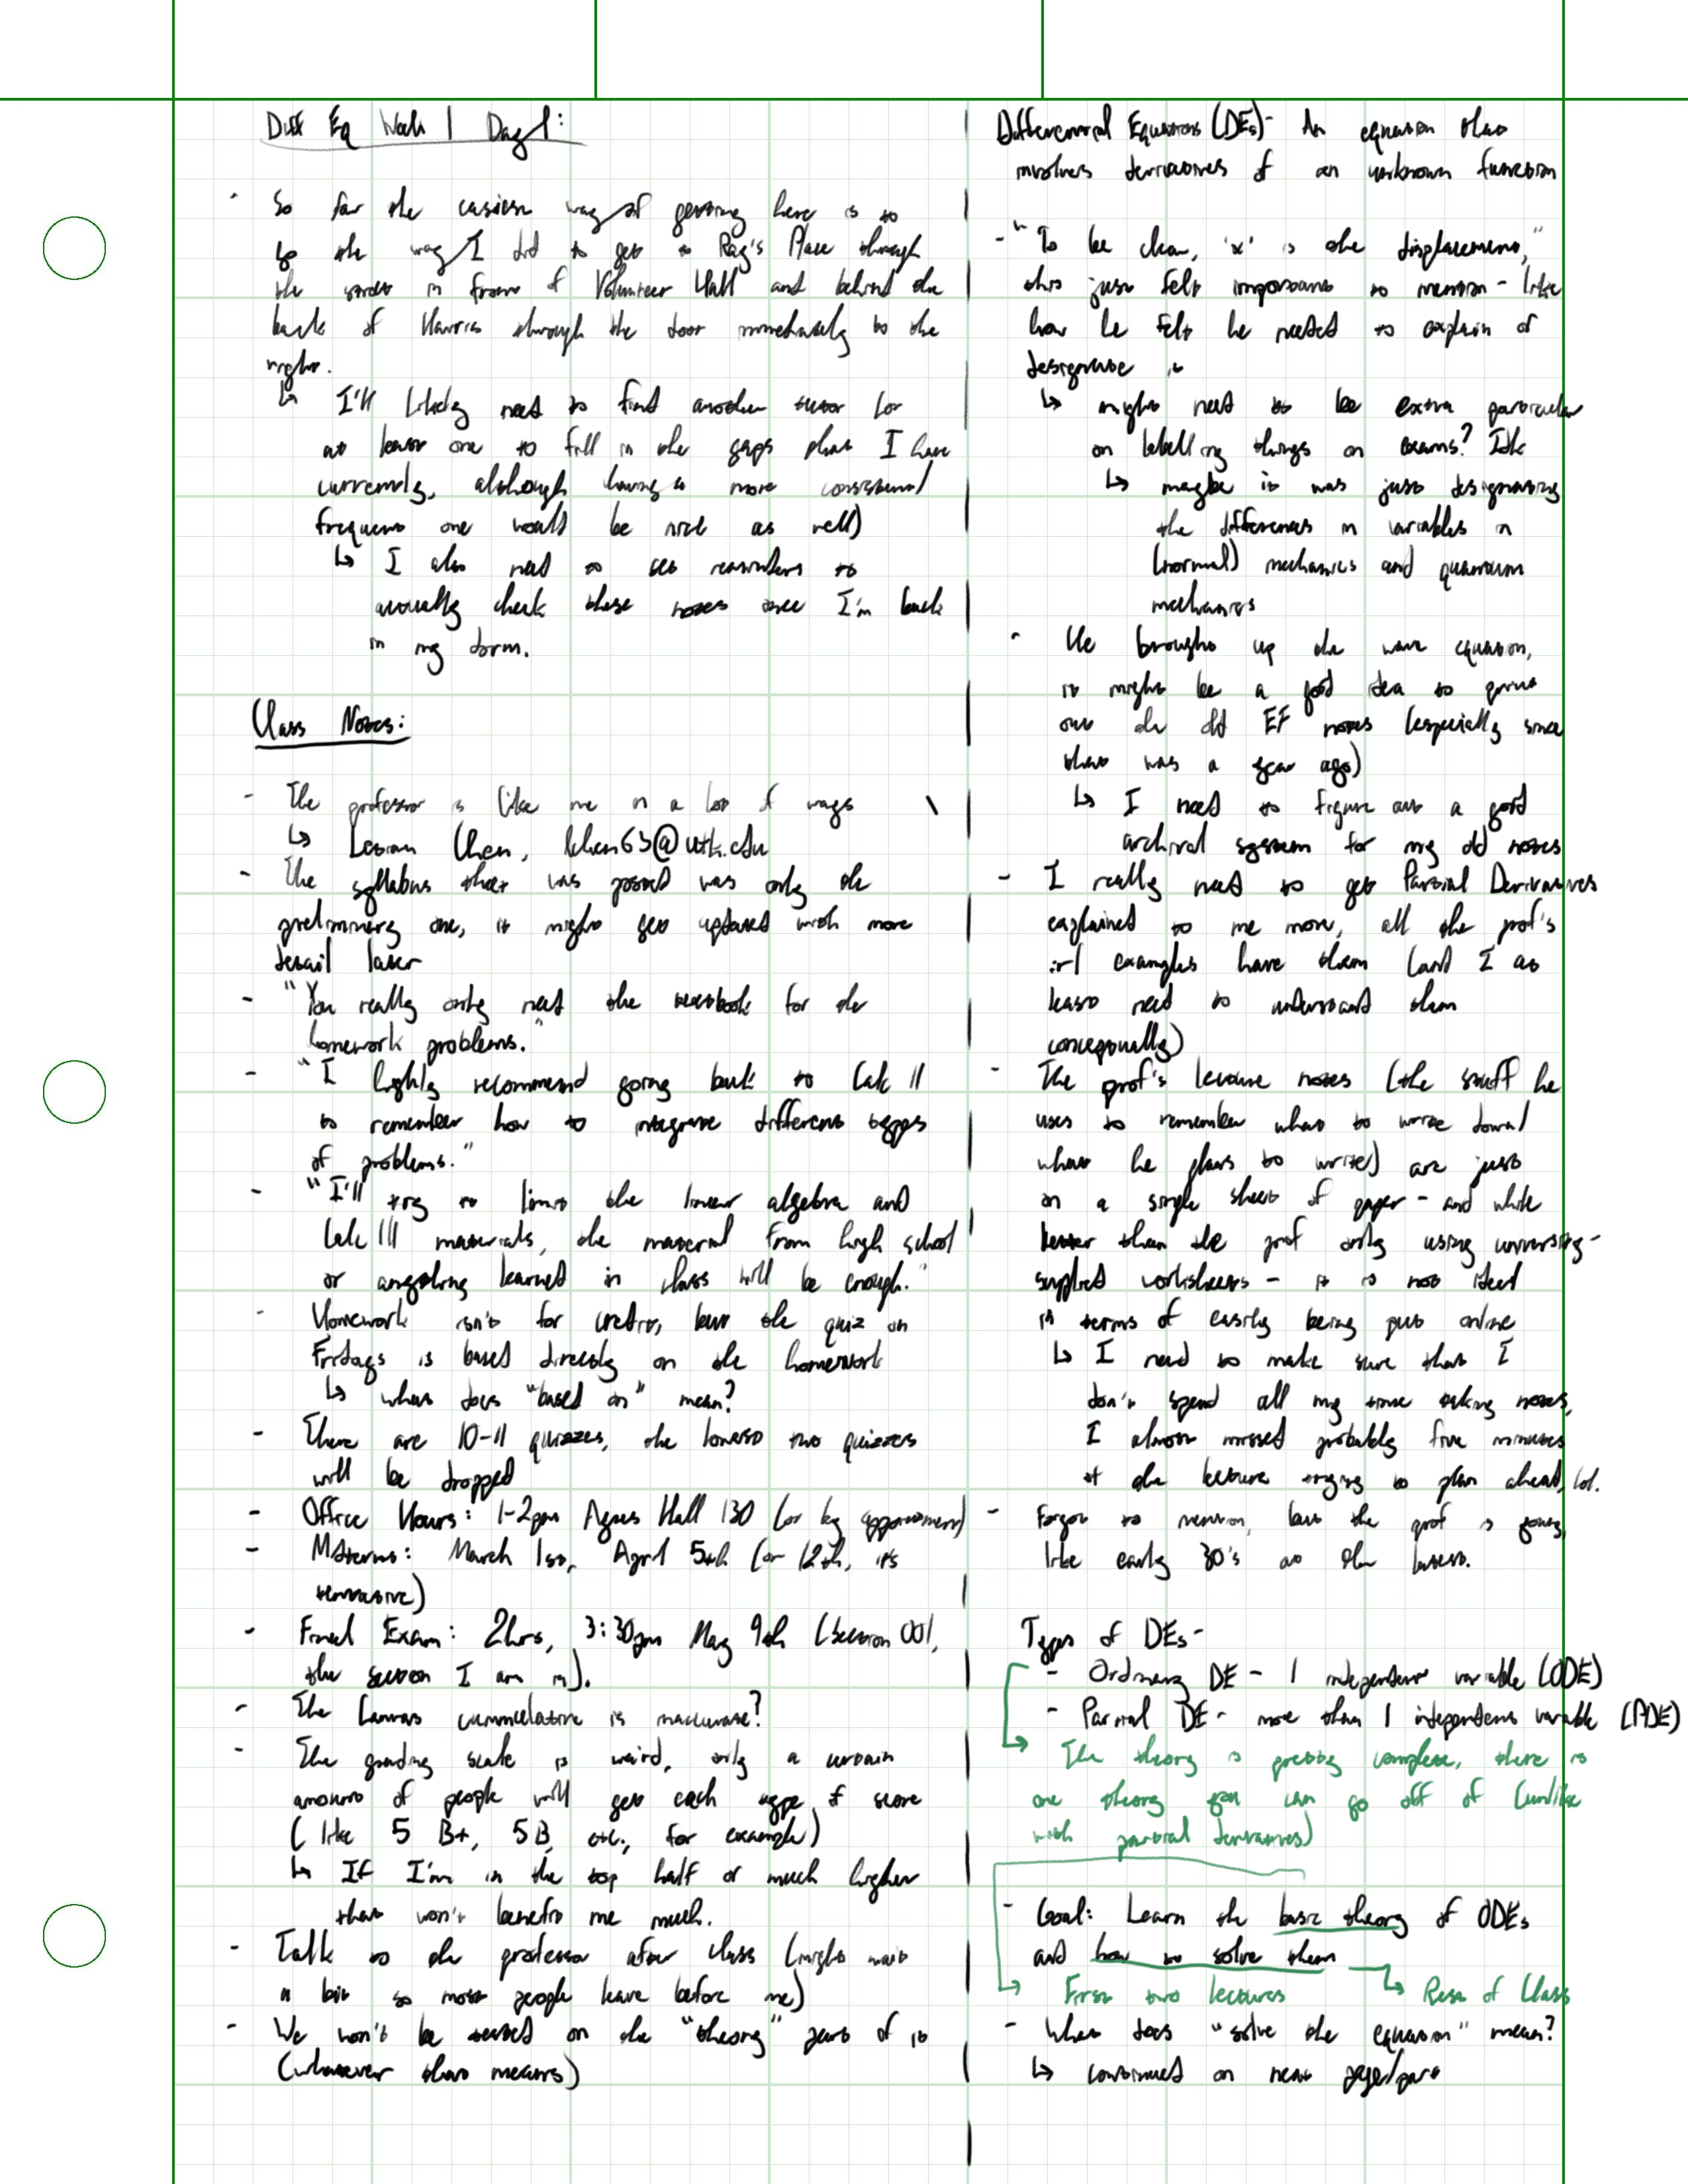 Diff Eq Week 1 Day 1:
- So far the easiest way of getting here is to
go the way I did to get to Ray's Place through
the street in front of Volunteer Hall and behind the
back of Harris through the door immediately to the
right.
↳ I'll likely need to find another tutor (or
at least one to fill in the gaps that I have
currently, although having a more consistent/
frequent one would be nice as well)
↳ I also need to set reminders to
actually check these notes once I'm back
in my dorm.
Class Notes:
- The professor is like me in a lot of ways
↳ Chen, lchen63@utk.edu
- The syllabus that was posted was only the
preliminary one, it might get updated with more
detail later
- "You really only need the textbook for the
homework problems."
- "I highly recommend going back to Calc II
to remember how to integrate different types
of problems."
- "I'll try to limit the linear algebra and
Calc III materials, the material from high school
or anything learned in class will be enough."
- Homework isn't for credit, but the quiz on
Fridays is based directly on the homework
↳ what does "based on" mean?
- There are 10-11 quizzes, the lowest two quizzes
will be dropped
- Office Hours: 1-2pm Ayres Hall 130 (or by appointment)
- Midterms: March 1st, April 5th (or 12th, it's
tentative)
- Final Exam: 2hrs, 3:30pm May 9th (Section 001,
the section I am in).
- The Canvas cummulative is inaccurate?
- The grading scale is weird, only a certain
amount of people will get each type of score
(like 5 B+, 5 B, etc., for example)
↳ If I'm in the top half or much higher
that won't benefit me much.
- Talk to the professor after class (might wait
a bit so most people leave before me)
- We won't be tested on the "theory" part of it
(whatever that means)
Differential Equations (DEs)- An equation that
involves derivatives of an unknown function
- "To be clear, 'x' is the displacement,"
this just felt important to mention - like
how he felt he needed to explain or
designate it
↳ might need to be extra particular
on labelling things on exams? Idk
↳ maybe it was just designating
the differences in variables in
(normal) mechanics and quantum
mechanics
- He brought up the wave equation,
it might be a good idea to print
out the old EF notes (especially since
that was a year ago)
↳ I need to figure out a good
archival system for my old notes
- I really need to get Partial Derivatives
explained to me more, all the prof's
irl examples have them (and I at
least need to understand them
conceptually)
- The prof's lecture notes (the stuff he
uses to remember what to write down/
what he plans to write) are just
on a single sheet of paper - and while
better than the prof only using university-
supplied worksheets - it is not ideal
in terms of easily being put online
↳ I need to make sure that I
don't spend all my time taking notes,
I almost missed probably five minutes
of the lecture trying to plan ahead, lol.
- Forgot to mention, but the prof is young,
like early 30's at the latest.
Types of DEs-
- Ordinary DE - 1 independent variable (ODE)
- Partial DE - more than 1 independent variable (PDE)
The theory is pretty complete, there is
one theory you can go off of (unlike
with partial derivatives)
- Goal: Learn the basic theory of ODEs
and how to solve them
↳ First two lectures ↳ Rest of Class
- What does "solve the equation" mean?
↳ continued on next page/part